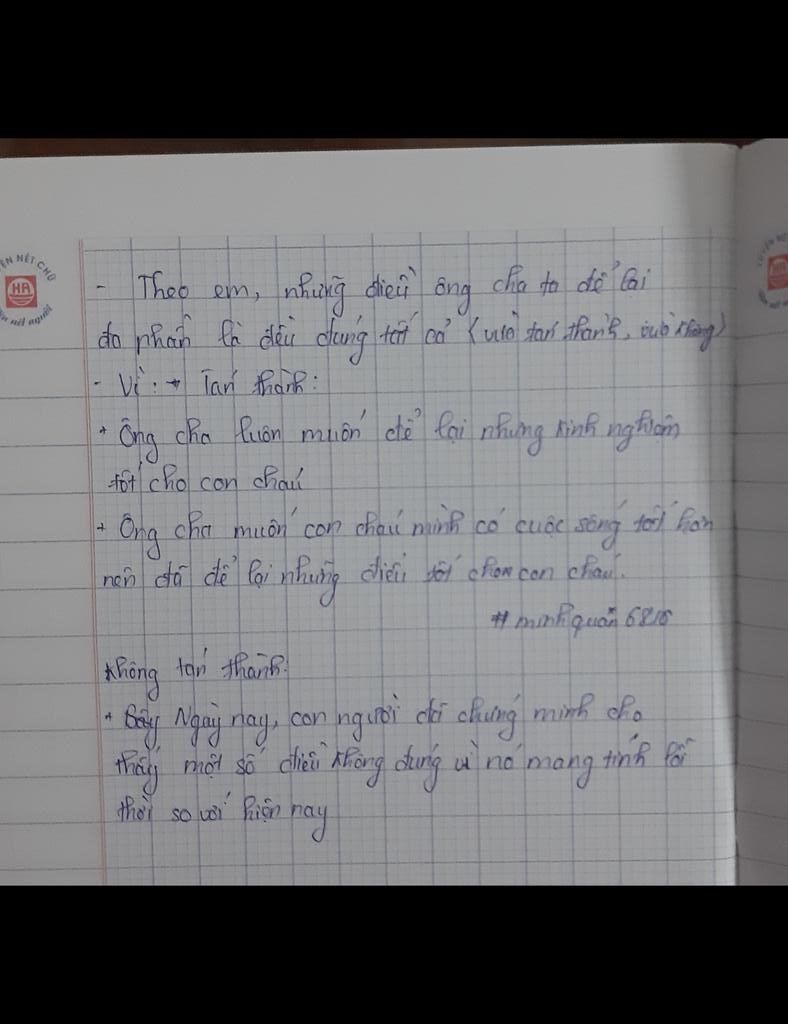 - Theo em, những điều ông cha ta để lại
đa phần là đều đúng tất cả (vừa tán thành, vừa không)
- Vì: → Tán thành:
+ Ông cha luôn muốn để lại những kinh nghiệm
tốt cho con cháu
+ Ông cha muốn con cháu mình có cuộc sống tốt hơn
nên đã để lại những điều tốt cho con cháu.
# minhquân
không tán thành:
+ Ngày nay, con người đã chứng minh cho
thấy một số điều không đúng vì nó mang tính lỗi
thời so với hiện nay
HA
NÉT CHỮ
nết người